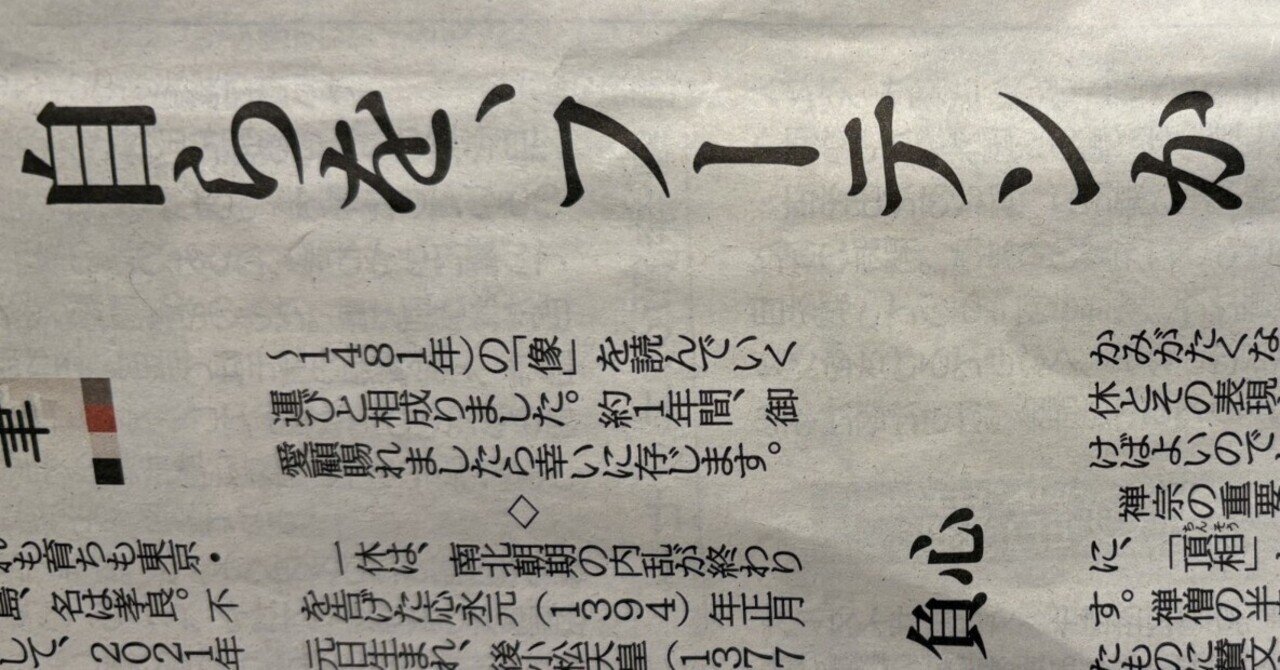 自らを、フーテンか
も育ちも東京・
島、名は孝良。不
して、2021年
〜1481年)の「像」を読んでいく
運びと相成りました。約1年間、御
愛顧賜れましたら幸いに存じます。
◇
一休は、南北朝期の内乱が終わり
を告げた応永元(1394)年正月
元日生まれ、後小松天皇(1377
負心
かみがたくな
休とその表現
けばよいので、
禅宗の重要
に、「頂相」
ちんそう
す。禅僧の半
たものに賛文